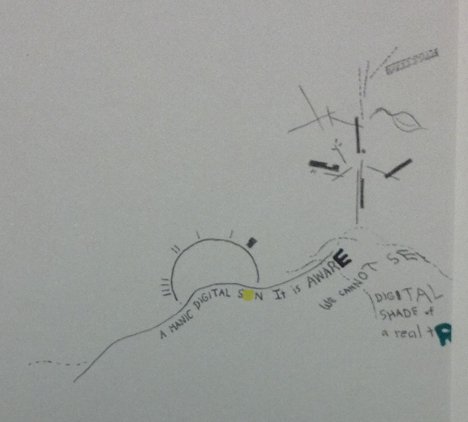 A MANIC DIGITAL SUN It is AWARE
WE CANNOT SE
DIGITAL
SHADE of
a real tR